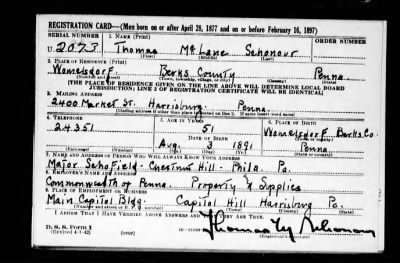 REGISTRATION CARD—(Men born on or after April 28, 1877 and on or before February 16, 1897)
SERIAL NUMBER 1. NAME (Print) ORDER NUMBER
U 2073 Thomas McLane Schonour
(First) (Middle) (Last)
2. PLACE OF RESIDENCE (Print)
Womelsdorf Berks County Penna.
(Number and street) (Town, township, village, or city) (County) (State)
[THE PLACE OF RESIDENCE GIVEN ON THE LINE ABOVE WILL DETERMINE LOCAL BOARD
JURISDICTION; LINE 2 OF REGISTRATION CERTIFICATE WILL BE IDENTICAL]
3. MAILING ADDRESS
2400 Market St. Harrisburg Penna.
[Mailing address if other than place indicated on line 2. If same insert word same]
4. TELEPHONE 5. AGE IN YEARS 6. PLACE OF BIRTH
24351 51 Womelsdorf Berks Co.
DATE OF BIRTH
Aug. 3 1891 Penna.
(Mo.) (Day) (Yr.)
7. NAME AND ADDRESS OF PERSON WHO WILL ALWAYS KNOW YOUR ADDRESS
Major Schofield - Chestnut Hill - Phila. Pa.
8. EMPLOYER'S NAME AND ADDRESS
Commonwealth of Penna. Property & Supplies
9. PLACE OF EMPLOYMENT OR BUSINESS
Main Capitol Bldg. Capitol Hill Harrisburg Pa.
(Number and street or R. F. D. number) (Town) (County) (State)
I AFFIRM THAT I HAVE VERIFIED ABOVE ANSWERS AND THAT THEY ARE TRUE.
D. S. S. Form 1
(Revised 4-1-42) (over)
Thomas